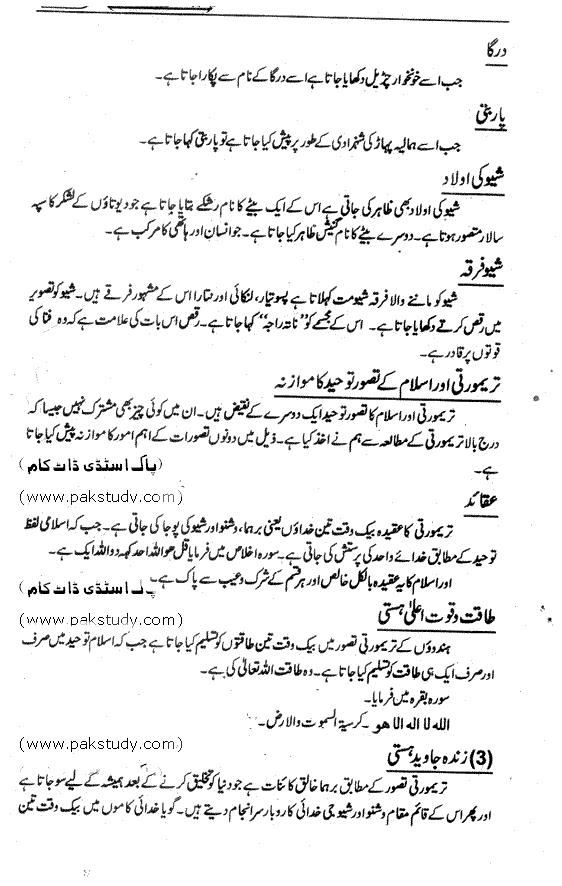 درگا
جب اسے خونخوار چڑیل دکھایا جاتا ہے اسے درگا کے نام سے پکارا جاتا ہے۔
پاربتی
جب اسے ہمالیہ پہاڑ کی شہزادی کے طور پر پیش کیا جاتا ہے تو پاربتی کہا جاتا ہے۔
شیو کی اولاد
شیو کی اولاد بھی ظاہر کی جاتی ہے اس کے ایک بیٹے کا نام رشکے بتایا جاتا ہے جو دیوتاؤں کے لشکر کا سپہ
سالار متصور ہوتا ہے۔ دوسرے بیٹے کا نام گنیش ظاہر کیا جاتا ہے۔ جو انسان اور ہاتھی کا مرکب ہے۔
شیو فرقہ
شیو کو ماننے والا فرقہ شیومت کہلاتا ہے پسوتیار، لنکائی اور نتارا اس کے مشہور فرقے ہیں۔ شیو کو تصویر
میں رقص کرتے دکھایا جاتا ہے۔ اس کے مجسمے کو ”ناتہ راجہ“ کہا جاتا ہے۔ رقص اس بات کی علامت ہے کہ وہ فنا کی
قوتوں پر قادر ہے۔
تریمورتی اور اسلام کے تصور توحید کا موازنہ
تریمورتی اور اسلام کا تصور توحید ایک دوسرے کے نقیض ہیں۔ ان میں کوئی چیز بھی مشترک نہیں جیسا کہ
درج بالا تریمورتی کے مطالعہ سے ہم نے اخذ کیا ہے۔ ذیل میں دونوں تصورات کے اہم امور کا موازنہ پیش کیا جاتا
ہے۔ (پاک اسٹڈی ڈاٹ کام)
عقائد (www.pakstudy.com)
تریمورتی کا عقیدہ بیک وقت تین خداؤں یعنی برہما، وشنو اور شیو کی پوجا کی جاتی ہے۔ جب کہ اسلامی لفظ
توحید کے مطابق خدائے واحد کی پرستش کی جاتی ہے۔ سورہ اخلاص میں فرمایا قل ھو اللہ احد کہہ دو اللہ ایک ہے۔
اور اسلام کا یہ عقیدہ بالکل خالص اور ہر قسم کے شرک و عیب سے پاک ہے۔ اسٹڈی ڈاٹ کام)
طاقت و قوت اعلیٰ ہستی (www.pakstudy.com)
ہندوؤں کے تریمورتی تصور میں بیک وقت تین طاقتوں کو تسلیم کیا جاتا ہے جب کہ اسلام توحید میں صرف
اور صرف ایک ہی طاقت کو تسلیم کیا جاتا ہے۔ وہ طاقت اللہ تعالیٰ کی ہے۔
سورہ بقرہ میں فرمایا۔
اللہ لا الہ الا ھو ۔ کرسیۃ السموت والارض۔
(3) زندہ جاوید ہستی (www.pakstudy.com)
تریمورتی تصور کے مطابق برہما خالق کائنات ہے جو دنیا کو تخلیق کرنے کے بعد ہمیشہ کے لیے سو جاتا ہے
اور پھر اس کے قائم مقام وشنو اور شیو جی خدائی کاروبار سرانجام دیتے ہیں۔ گویا خدائی کاموں میں بیک وقت تین